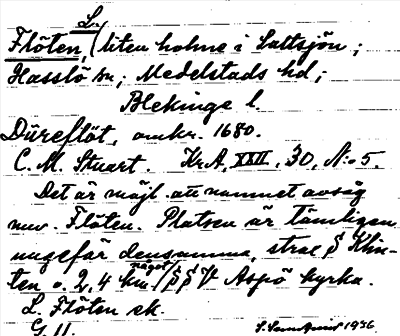 L.
Flöten, (liten holme i Saltsjön;
Hasslö sn; Medelstads hd;
Blekinge l.
Düreflöt, omkr. 1680.
C. M. Stuart. Kr.A. XXII, 30, No 5.
Det är möjl. att namnet avsåg
nuv. Flöten. Platsen är tämligen
ungefär densamma, strax § Klin-
ten o. 2,4 km. något §§V Aspö kyrka.
L. Flöten ek.
G. U.
1936